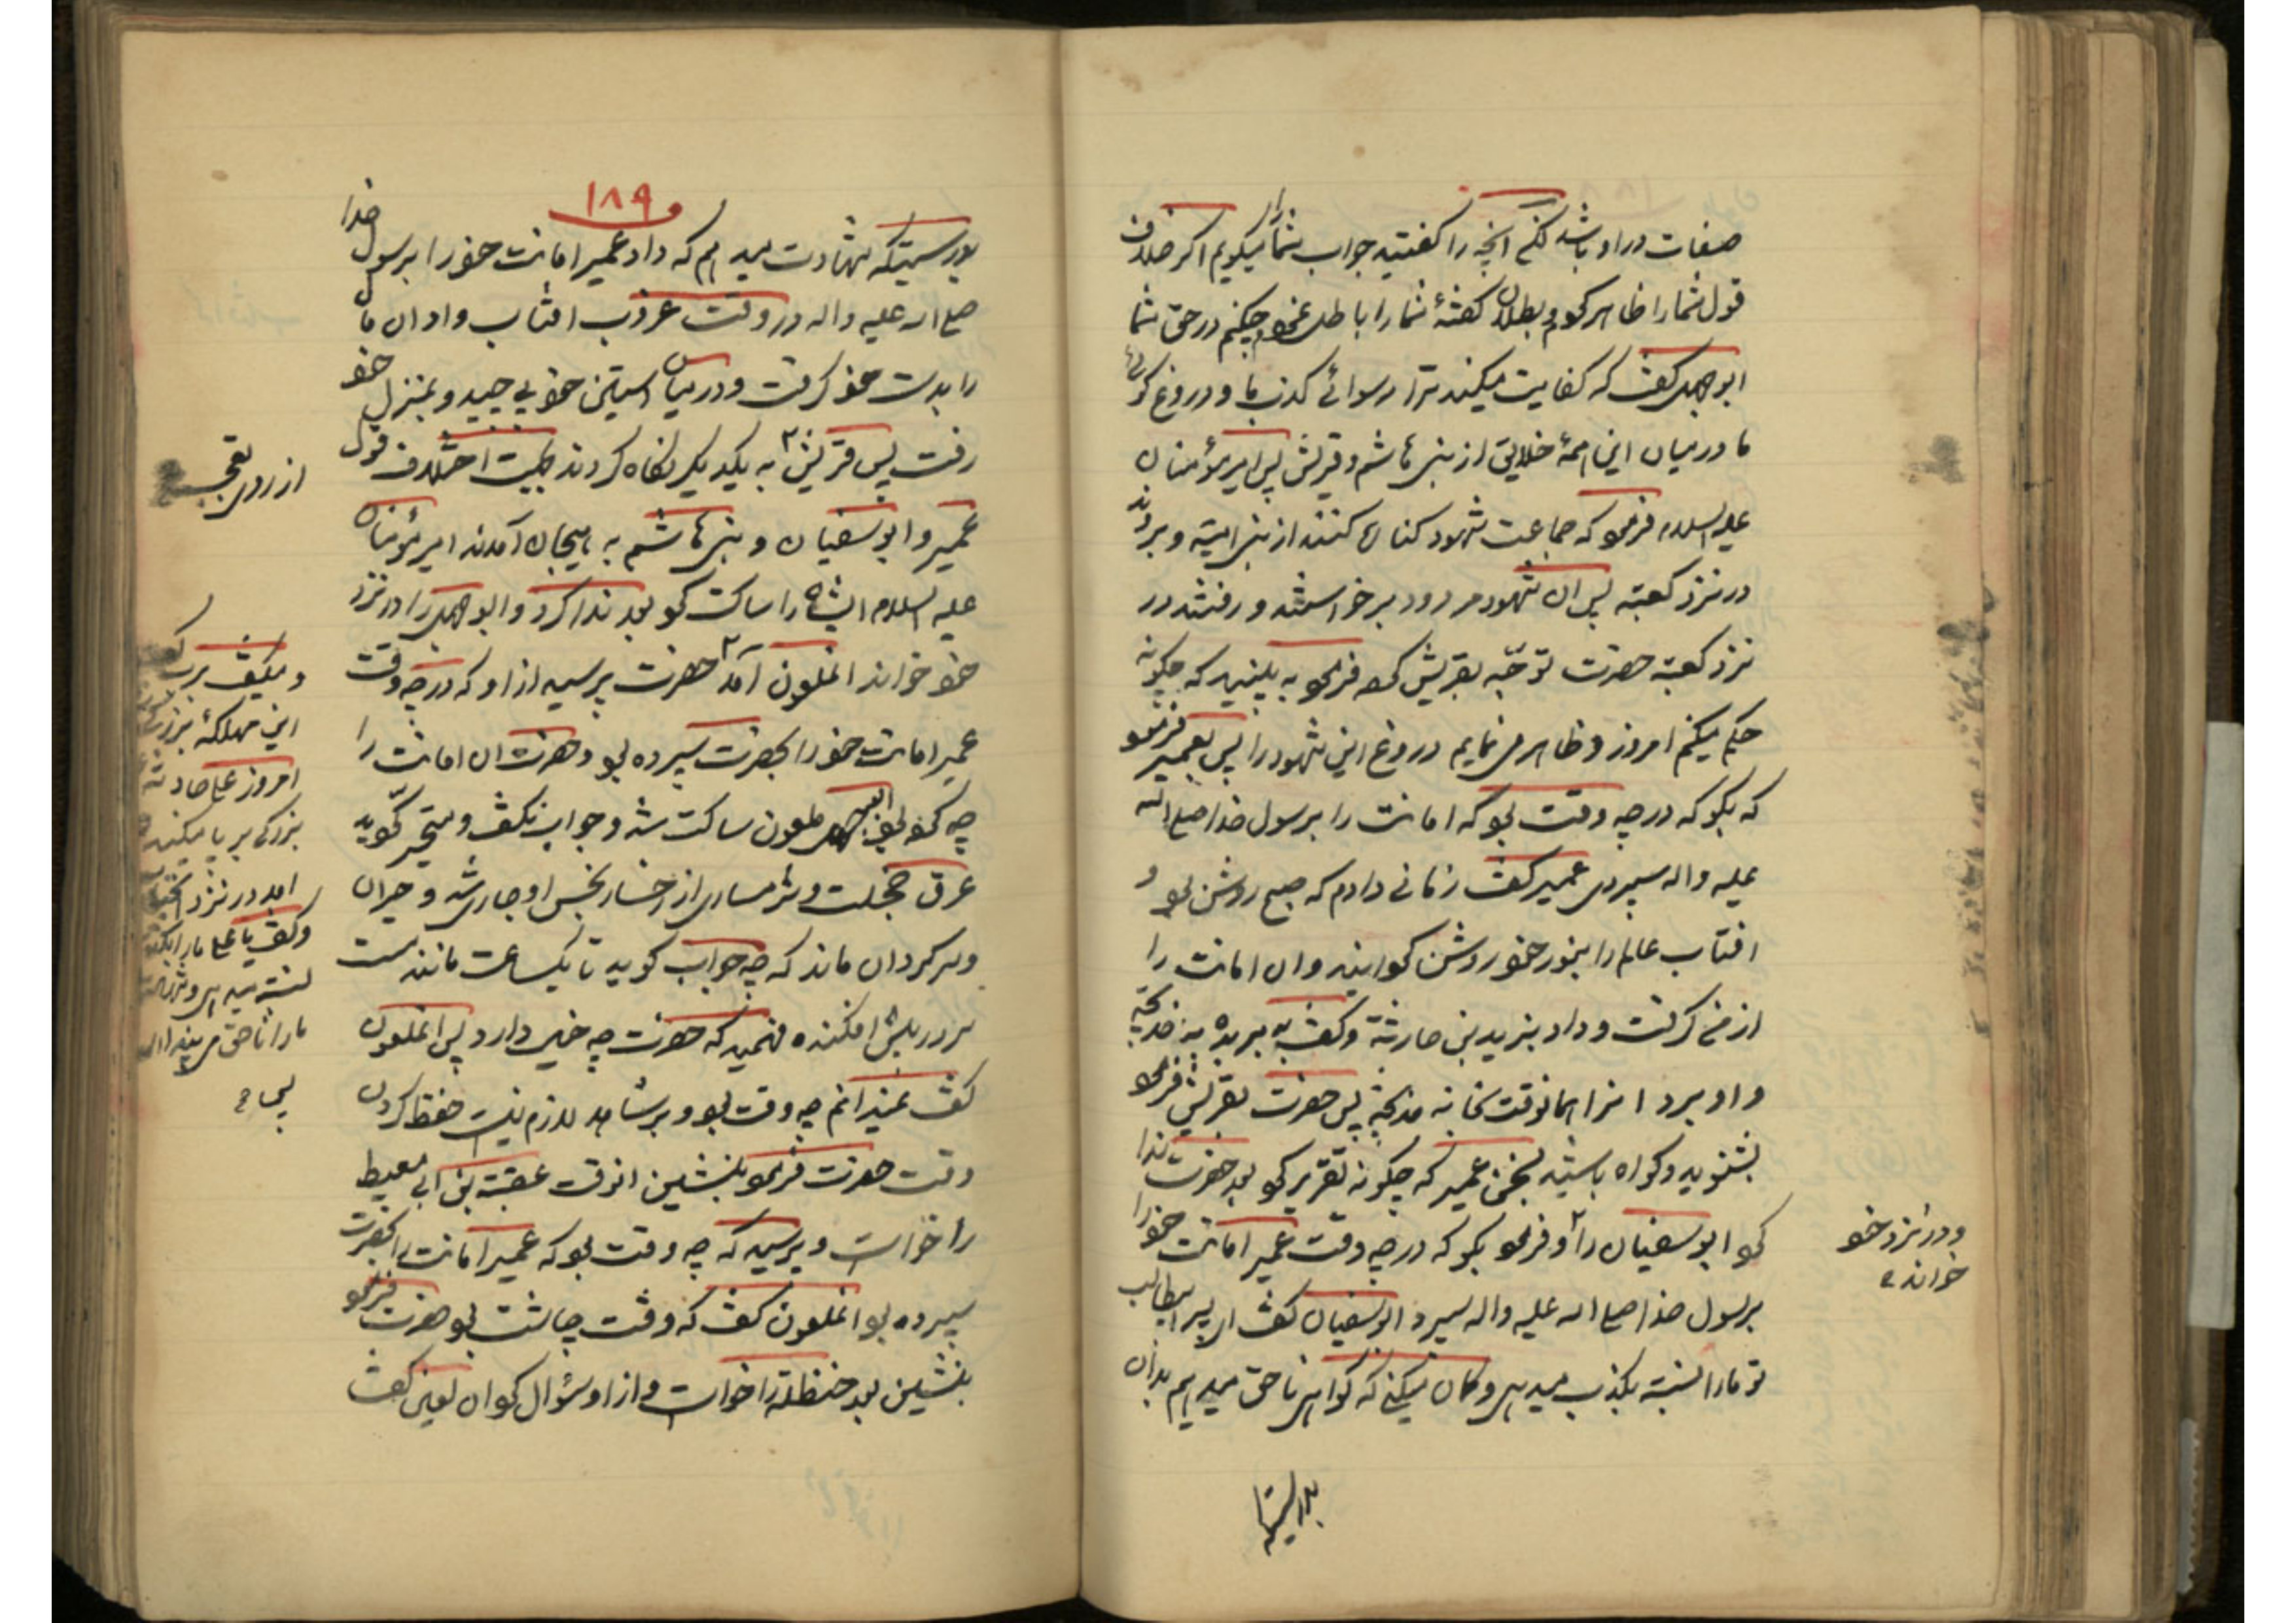 صفات در او باشد لکن انچه را کفتید جواب شما را میکویم اکر خلاف
قول شما را ظاهر کنم و بطلان کفتهٔ شما را باطل نمودم چکنم در حق شما
ابوجهل کفت که کفایت میکند ترا رسوائے کذب ما و دروغ کوئی
ما در میان این همهٔ خلایق از بنی هاشم و قریش پس امیرمؤمنان
علیه السلام فرمود که جماعت شهود کناره کنند از بنی امیه و بروند
در نزد کعبه پس ان شهود مردود برخواستند و رفتند در
نزد کعبه حضرت توجّه بقریش کرده فرمود به بینید که چکونه
حکم میکنم امروز و ظاهر می نمایم دروغ این شهود را پس بعمیر فرمود
که بکو که در چه وقت بود که امانت را برسول خدا صلی الله
علیه واله سپردی عمیر کفت زمانے دادم که صبح روشن بود و
افتاب عالم را بنور خود روشن کردانید وان امانت را
از من کرفت و داد بزید بن حارثة و کفت به ببر به خدیجه
و او برد انرا همانوقت بخانه خدیجه پس حضرت بقریش فرمود
بشنوید و کواه باشید بسخن عمیر که چکونه تقریر کرد بعد حضرت ندا
کرد ابوسفیان را و فرمود بکو که در چه وقت عمیر امانت خود را
برسول خدا صلی الله علیه واله سپرد ابوسفیان کفت ای پسر ابیطالب
تو ما را نسبت بکذب میدهی و کمان میکنی که کواهی ناحق میدهیم بدان
و در نزد خود
خوانده
بدرستیکه
۱۸۹
بدرستیکه شهادت میدهم که داد عمیر امانت خود را برسول خدا
صلی الله علیه واله در وقت غروب افتاب و او ان مال
را بدست خود کرفت و در میان استین خود پیچید و بمنزل خود
رفت پس قریش به یکدیکر نکاه کردند بجهت اختلاف قول
عمیر و ابوسفیان و بنی هاشم به هیجان آمدند امیرمؤمنان
علیه السلام ایشان را ساکت کرد بعد ندا کرد و ابوجهل را در نزد
خود خواند انملعون آمد حضرت پرسید از او که در چه وقت
عمیر امانت خود را بحضرت سپرده بود و حضرت ان امانت را
چه کرد ابوجهل ملعون ساکت شد و جواب نکفت و متحیر کردید
عرق خجلت و شرمساری از رخسار نجس او جاری شد و حیران
و سرکردان ماند که چه جواب کوید تا یکساعت مانند مست
سر در پیش افکنده فهمید که حضرت چه خیال دارد پس انملعون
کفت نمیدانم چه وقت بود و بر شاهد لازم نیست حفظ کردن
وقت حضرت فرمود بنشین انوقت عقبة بن ابی معیط
را خواست و پرسید که چه وقت بود که عمیر امانت را بحضرت
سپرده بود انملعون کفت که وقت چاشت بود حضرت فرمود
بنشین بعد حنظله را خواست و از او سؤال کرد ان لعین کفت
از روی تعجب
و میکفت
این مهلکهٔ بزرک
امروز علی
بزرکی برپا میکند
امد در نزد
و کفت یا علی ما را
نسبت میدهی
ما را ناحق می بیند